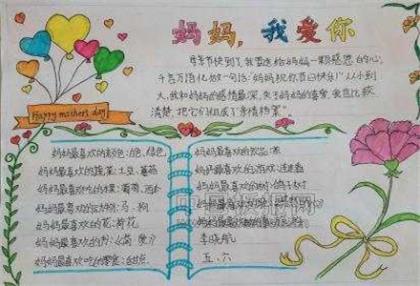 妈妈,我爱你
母亲节快到了,我要送给妈妈一颗感恩的心,
千言万语化做一句话:"妈妈祝你节日快乐!"从小到
大,我和妈妈的感情最深,关于妈妈的喜爱,我也比较
清楚,把它们组成了"亲情档案"
Happy mothers day
妈妈最喜欢的颜色:白色、绿色
妈妈最喜欢的蔬菜:土豆、蕃茄
妈妈最喜欢吃的水果:葡萄、
妈妈最喜欢的动物:马、狗
妈妈最喜欢的花:荷花
妈妈最喜欢的书:《简·爱》
妈妈最喜欢吃的零食:
妈妈最喜欢的饮品:茶
妈妈最喜欢的游戏:连连看
妈妈最喜欢的树:鸽子树
妈妈最喜欢
妈妈最喜欢
李晓航
五、六